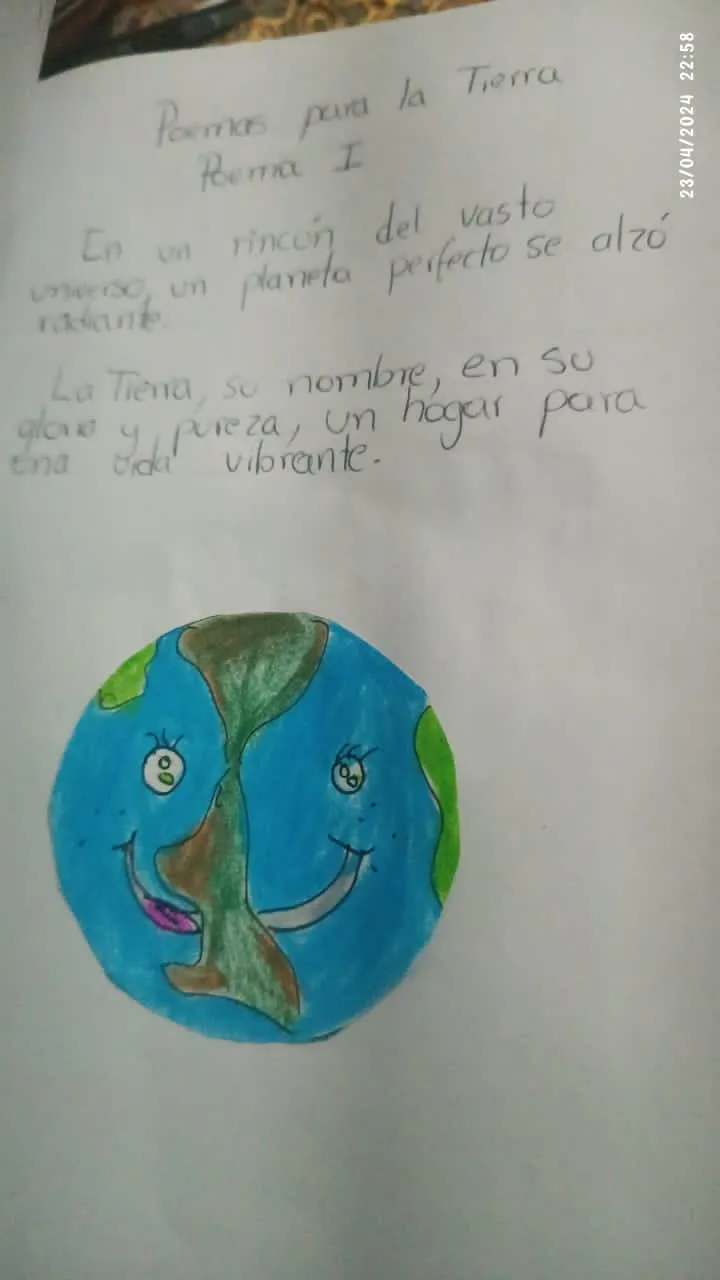 Poemas para la Tierra
Poema I
En un rincón del vasto
universo, un planeta perfecto se alzó
radiante.
La Tierra, su nombre, en su
gloria y pureza, un hogar para
una vida vibrante.
23/04/2024 22:58